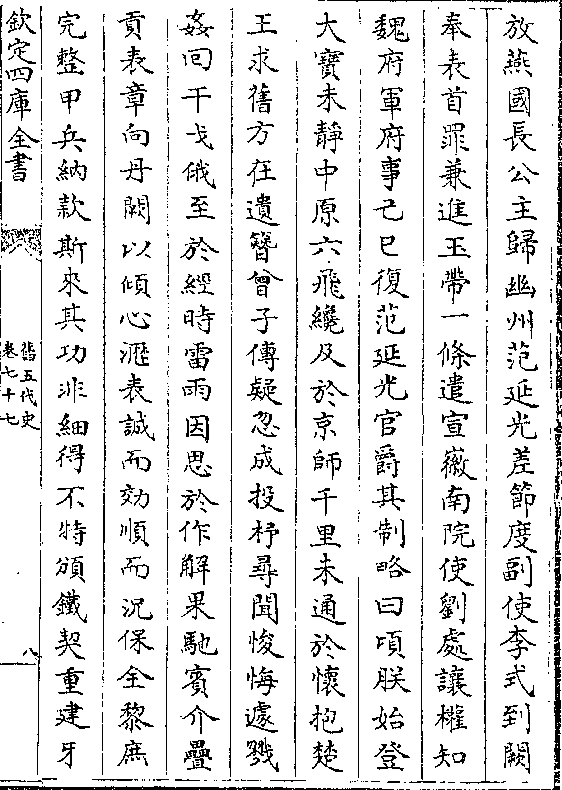 放燕國長公主歸幽州范延光差節度副使李式到闕
奉表首罪兼進玉帶一條遣宣徽南院使劉處讓權知
魏府軍府事己巳復范延光官爵其制略曰頃朕始登
大寶未靜中原六飛纔及於京師千里未通於懷抱楚
王求舊方在遺簪曾子傳疑忽成投杼尋聞悛悔遽戮
姦回干戈俄至於經時雷雨因思於作解果馳賓介疊
貢表章向丹闕以傾心瀝表誠而効順而況保全黎庶
完整甲兵納款斯來其功非細得不特頒鐵契重建牙
欽定四庫全書
舊五代史
卷七十七
八